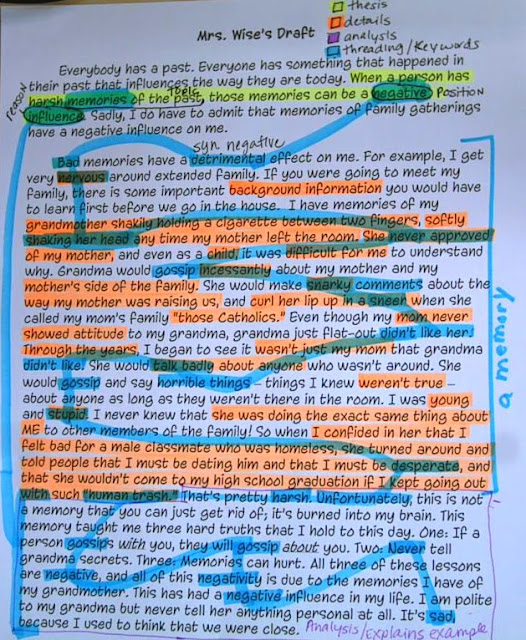 thesis
details
analysis
threading/Keywords
Mrs. Wise's Draft
Everybody has a past. Everyone has something that happened in
their past that influences the way they are today. When a person has
reason
topic
harsh memories of the past, those memories can be a negative
position
influence. Sadly, I do have to admit that memories of family gatherings
have a negative influence on me.
syn negative
Bad memories have a detrimental effect on me. For example, I get
very nervous around extended family. If you were going to meet my
family, there is some important background information you would have
to learn first before we go in the house. I have memories of my
grandmother shakily holding a cigarette between two fingers, softly
shaking her head any time my mother left the room. She never approved
of my mother, and even as a child, it was difficult for me to understand
why. Grandma would gossip incessantly about my mother and my
mother's side of the family. She would make snarky comments about the
way my mother was raising us, and curl her lip up in a sneer when she
called my mom's family "those Catholics." Even though my mom never
showed attitude to my grandma, grandma just flat-out didn't like her!
Through the years, I began to see it wasn't just my mom that grandma
didn't like! She would talk badly about anyone who wasn't around. She
would gossip and say horrible things – things I knew weren't true –
about anyone as long as they weren't there in the room. I was young
and stupid. I never knew that she was doing the exact same thing about
ME to other members of the family! So when I confided in her that I
felt bad for a male classmate who was homeless, she turned around and
told people that I must be dating him and that I must be desperate, and
that she wouldn't come to my high school graduation if I kept going out
with such "human trash." That's pretty harsh. Unfortunately, this is not
a memory that you can just get rid of; it's burned into my brain. This
memory taught me three hard truths that I hold to this day. One: If a
person gossips with you, they will gossip about you. Two: Never tell
grandma secrets. Three: Memories can hurt. All three of these lessons
are negative, and all of this negativity is due to the memories I have of
my grandmother. This has had a negative influence in my life. I am polite
to my grandma but never tell her anything personal at all. It's sad,
because I used to think that we were close.
Analysis/explains example
a memory